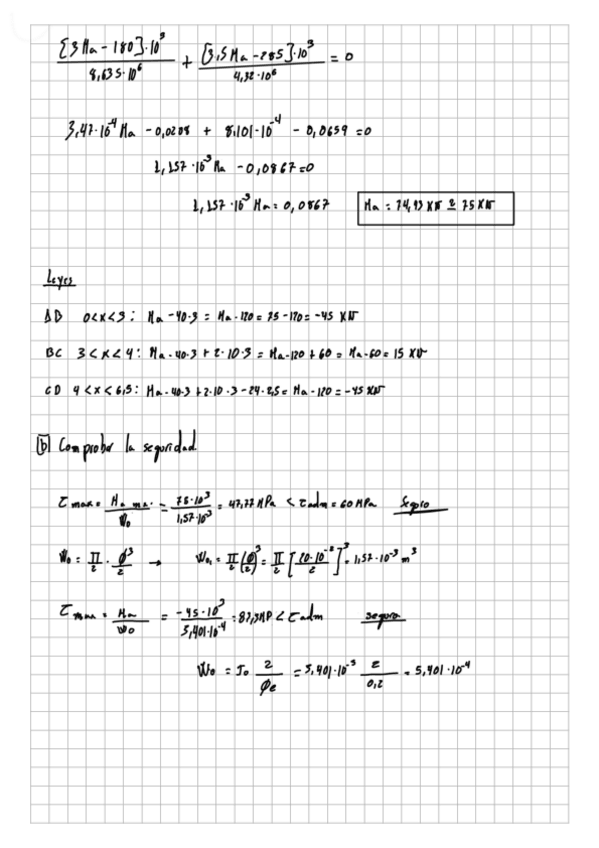 [3Ma - 180]·10³ / 8,635·10⁶ + [3,5Ma - 285]·10³ / 4,32·10⁶ = 0
3,47·10⁻⁴ Ma - 0,0208 + 8,101·10⁻⁴ - 0,0659 = 0
1,157·10⁻³ Ma - 0,0867 = 0
1,157·10⁻³ Ma = 0,0867 Ma = 74,93 KN ≅ 75 KN
Leyes
AB 0<x<3: Ma - 40·3 = Ma - 120 = 75 - 120 = -45 KN
BC 3<x<4: Ma - 40·3 + 2·10·3 = Ma - 120 + 60 = Ma - 60 = 15 KN
CD 4<x<6,5: Ma - 40·3 + 2·10·3 - 24·2,5 = Ma - 120 = -45 KN
b) Comprobar la seguridad
τ max = Ma ma. / W₀ = 75·10³ / 1,57·10⁻³ = 47,77 MPa < τ adm = 60 MPa Seguro
W₀ = π/2 · ϕ³/2 → W₀₁ = π/2 (ϕ/2)³ = π/2 [20·10⁻² / 2]³ = 1,57·10⁻³ m³
τ max = Ma / W₀ = -45·10³ / 5,401·10⁻⁴ = 83,3 MP < τ adm seguro
W₀ = J₀ 2/ϕe = 5,401·10⁻⁵ 2/0,2 = 5,401·10⁻⁴